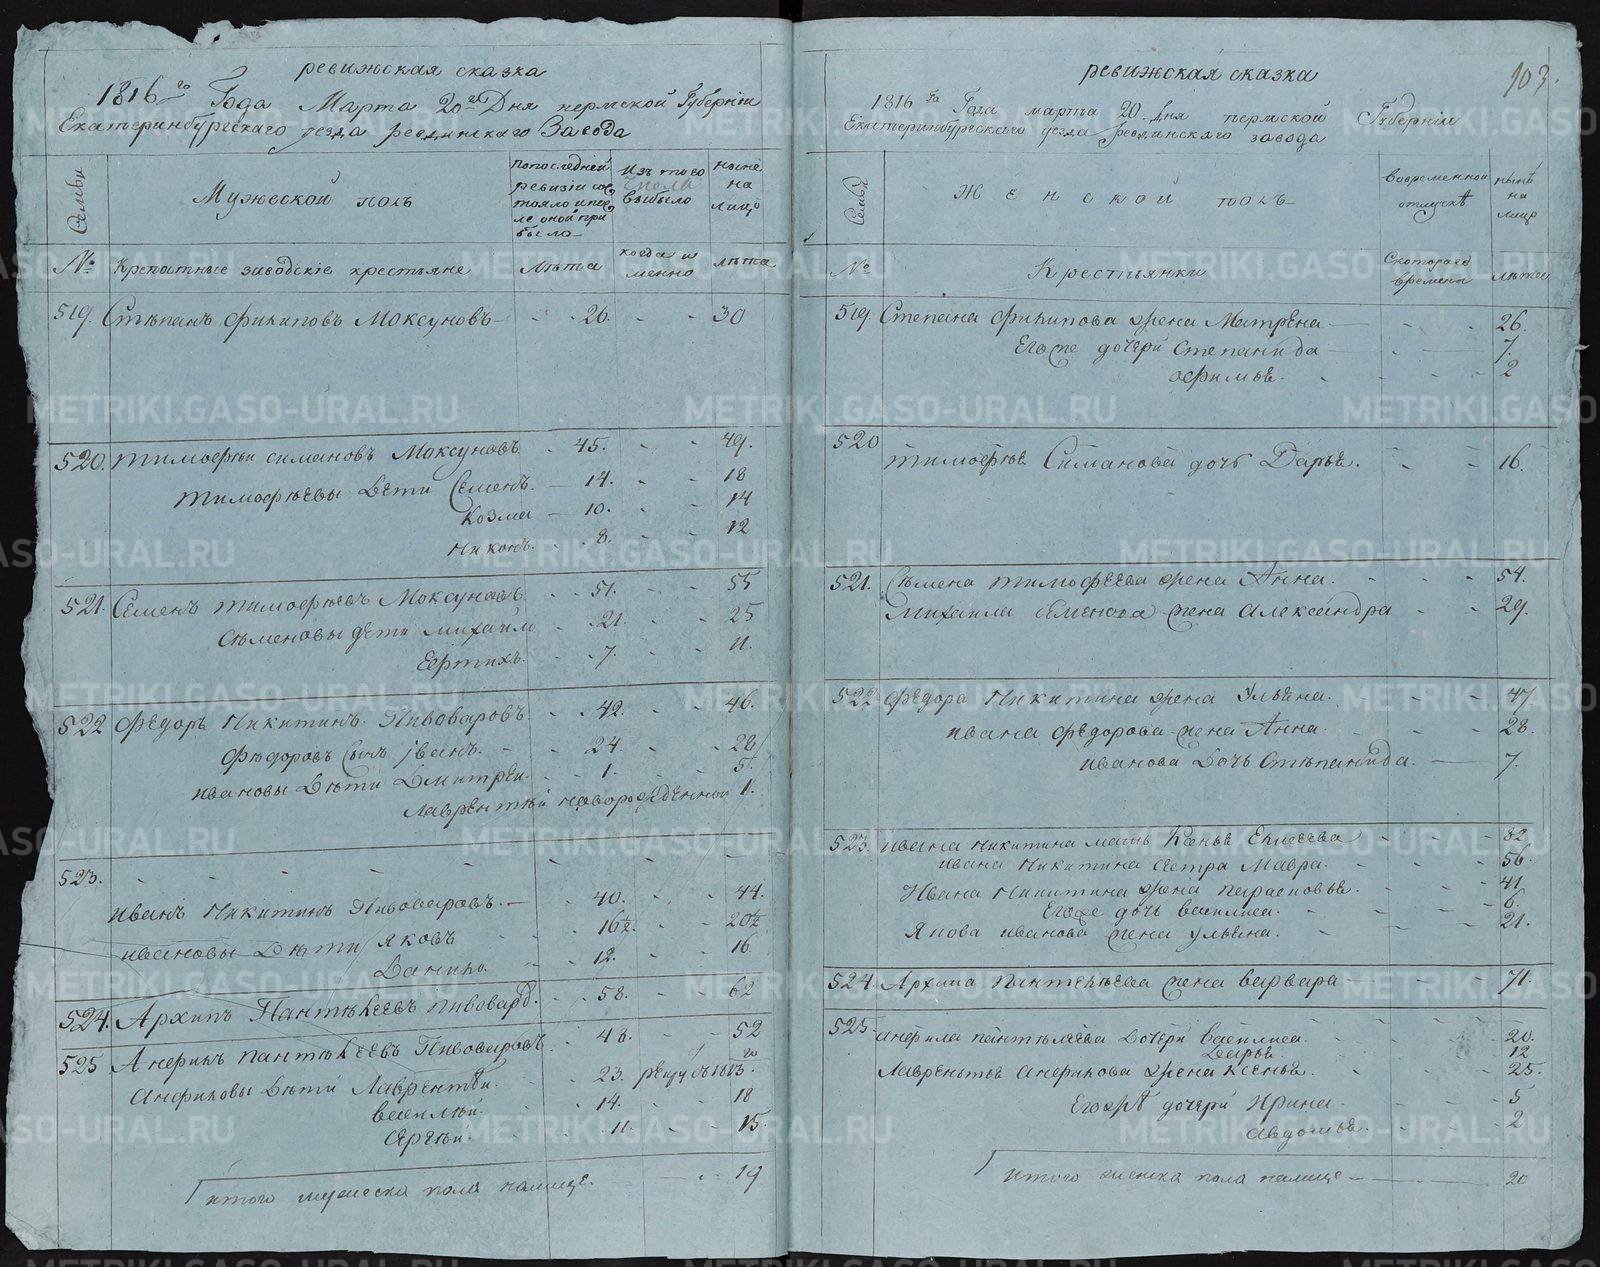 ревижская сказка
1816го Года Марта 20го Дня пермской Губерніи
Екатеринбурскаго уезда ревдинскаго Завода
Семьи
Мужеской полъ
Попоследней ревизіи состояло ипосле оной прибыло
Изъ того числа выбыло
ныне на лицо
№
Крепатные заводскіе крестьяне
Лѣта
когда и менно
лѣта
519. Стѣпанъ Филиповъ Моксуновъ 26. 30
520. Тимофѣи Симановъ Моксуновъ 45. 49.
Тимофѣевы Дети Семенъ 14. 18
Козма 10. 14
Никонъ 8. 12
521. Семенъ Тимофѣевъ Моксуновъ 51. 55
Сѣменовы дети Михаило 21. 25
7. 11.
522 Федоръ Никитинъ Пивоваровъ 42. 46.
Фѣдоровъ Сынъ Іванъ 24. 28
ивановы Дѣти Дмитреи 1. 5.
Лаврентѣи новорожденной 1.
523.
иванъ Никитинъ Пивоваровъ 40. 44.
ивановы Дѣти Яковъ 16½. 20½
Данило 12. 16
524. Архипъ Пантѣлеевъ пивовар. 58. 62
525 Анфилъ пантѣлеевъ Пивоваровъ 48. 52
Анфиловы Дѣти Лаврентѣи 23.
василѣи 14. 18
Сергѣи 11. 15.
итого мужеска пола налицо 19
ревижская сказка
103.
1816 го Года марта 20 Дня пермской Губерніи
Екатеринбурскаго уезда ревдинскаго завода
Семьи
Женской полъ
Вовременной отлучкѣ
нынѣ на лицо
№
Крестьянки
Скотораго времени
лѣта
519. Степана Филипова жена Матрена 26.
Егоже дочери Степанида 7.
Офимья 2
520
Тимофея Симанова дочь Дарья. 16.
521. Сѣмена тимофеева жена Анна. 54.
Михаила Семенова жена Александра 29.
522 Федора Никитина жена Ульяна. 47
ивана федорова жена Анна 28.
иванова Дочь Стѣпанида. 7.
523. ивана никитина мать Ксенья Елисеева 82
ивана Никитина сестра Мавра. 56.
Ивана Никитина жена парасковья. 41
Егоже дочь василиса. 6.
Якова иванова жена ульяна. 21.
524. Архипа пантелѣева жена варвара 71.
525. Анфила пантѣлѣева Дочери Василиса. 20.
Дарья. 12
Лаврентья Анфилова жена Ксенья. 25.
Егоже дочери Ирина 5
Авдотья. 2
итого женска пола налицо 20
METRIKI.GASO-URAL.RU